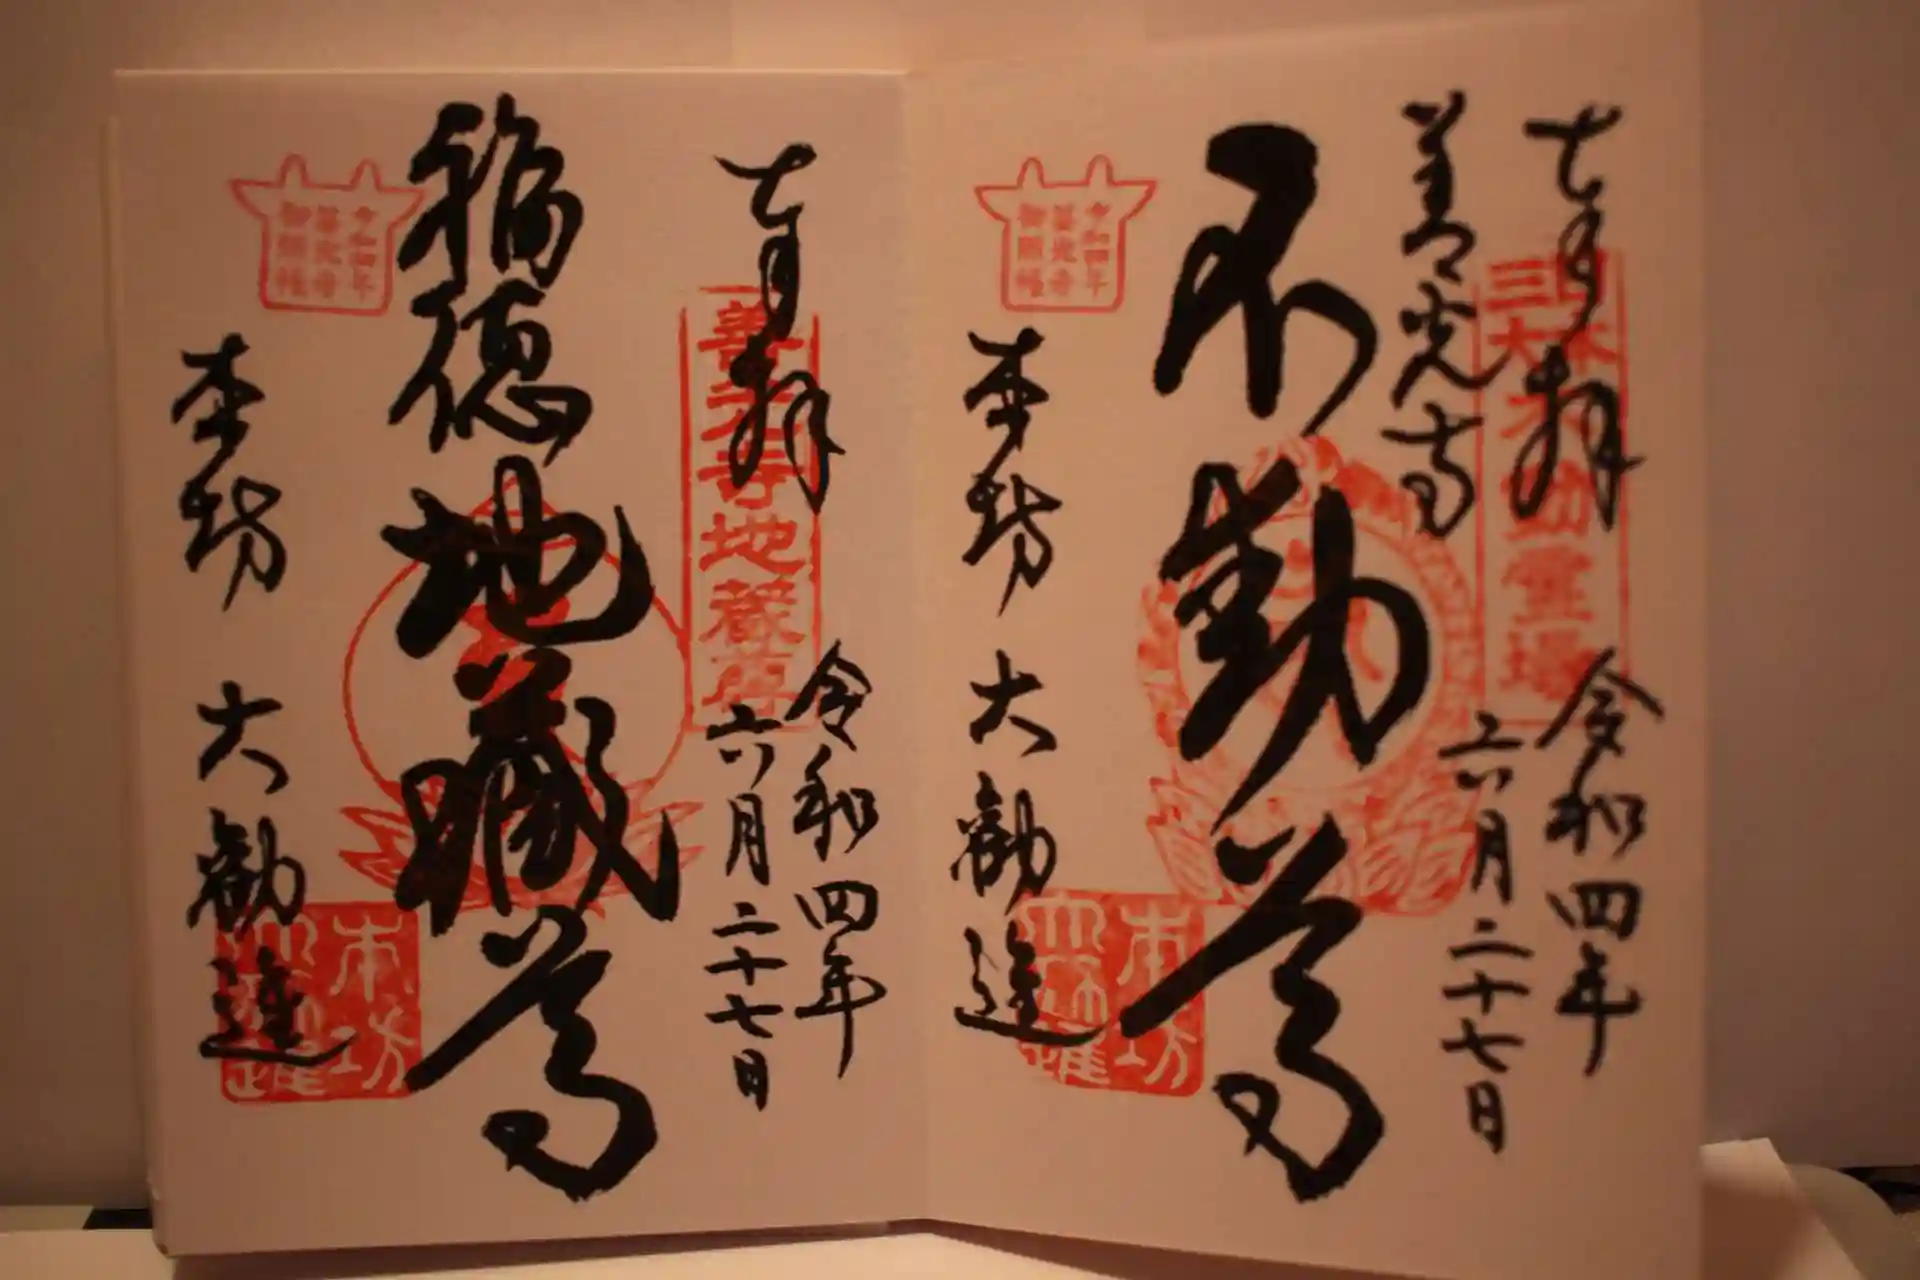 奉拝
日本
三大
不動霊場
善光寺
令和四年
六月二十七日
不動尊
令和四年
善光寺
御開帳
本坊 大勧進
本坊
大勧進
奉拝
善光寺地蔵尊
令和四年
六月二十七日
福徳
地蔵尊
令和四年
善光寺
御開帳
本坊 大勧進
本坊
大勧進